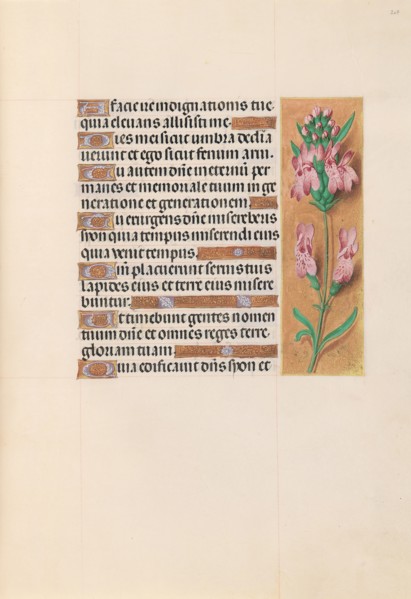 A facie ire indignationis tue
quia elevans allisisti me.
Dies mei sicut umbra declia
verunt et ego sicut fenum arui.
Tu autem dñe ineternũ per
manes et memoriale tuum in ge
neratione et generationem.
Tu exurgens dñe misereberis
syon quia tempus miserendi eius
quia venit tempus.
Qm placuerunt servis tuis
lapides eius et terre eius misere
buntur.
Et timebunt gentes nomen
tuum dñe et omnes reges terre
gloriam tuam.
Quia edificavit dñs syon et